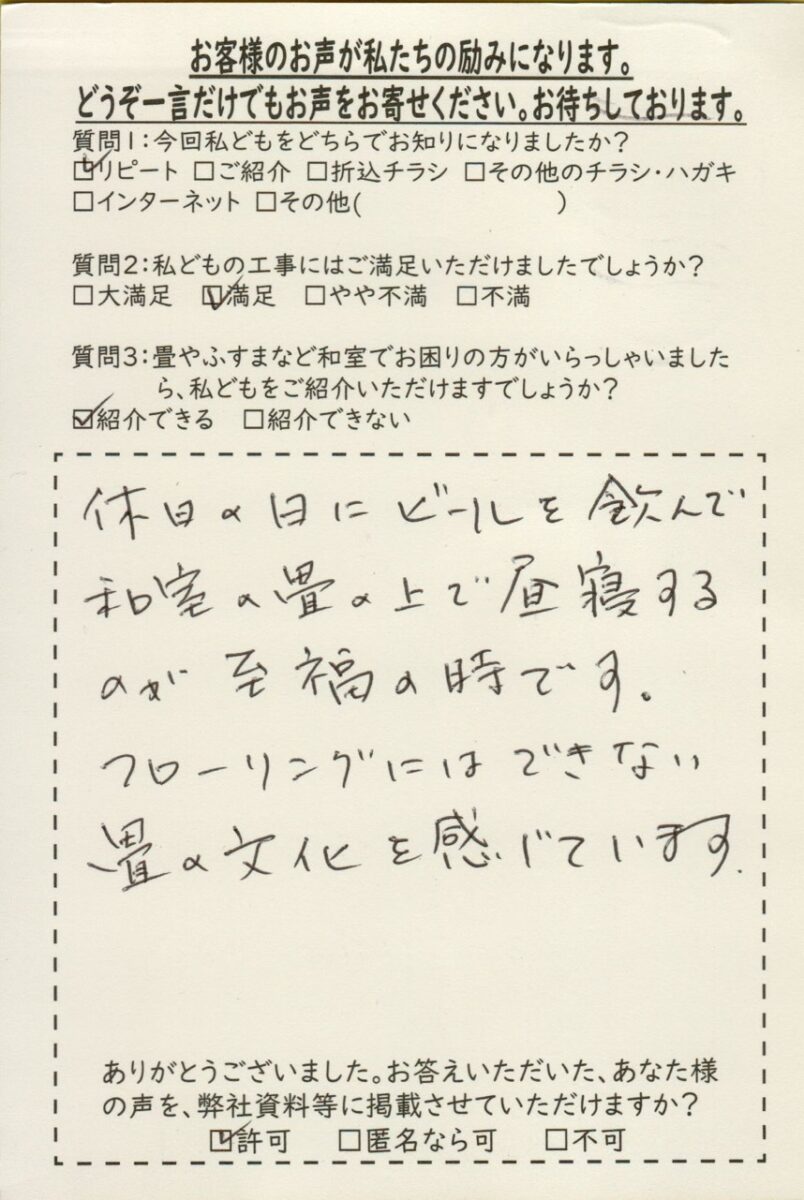 お客様のお声が私たちの励みになります。
どうぞ一言だけでもお声をお寄せください。お待ちしております。
質問1:今回私どもをどちらでお知りになりましたか?
☑リピート □ご紹介 □折込チラシ □その他のチラシ・ハガキ
□インターネット □その他( )
質問2:私どもの工事にはご満足いただけましたでしょうか?
□大満足 ☑満足 □やや不満 □不満
質問3:畳やふすまなど和室でお困りの方がいらっしゃいました
ら、私どもをご紹介いただけますでしょうか?
☑紹介できる □紹介できない
休日の日にビールを飲んで
和室の畳の上で昼寝する
のが至福の時です。
フローリングにはできない
畳の文化を感じています.
ありがとうございました。お答えいただいた、あなた様
の声を、弊社資料等に掲載させていただけますか?
☑許可 □匿名なら可 □不可